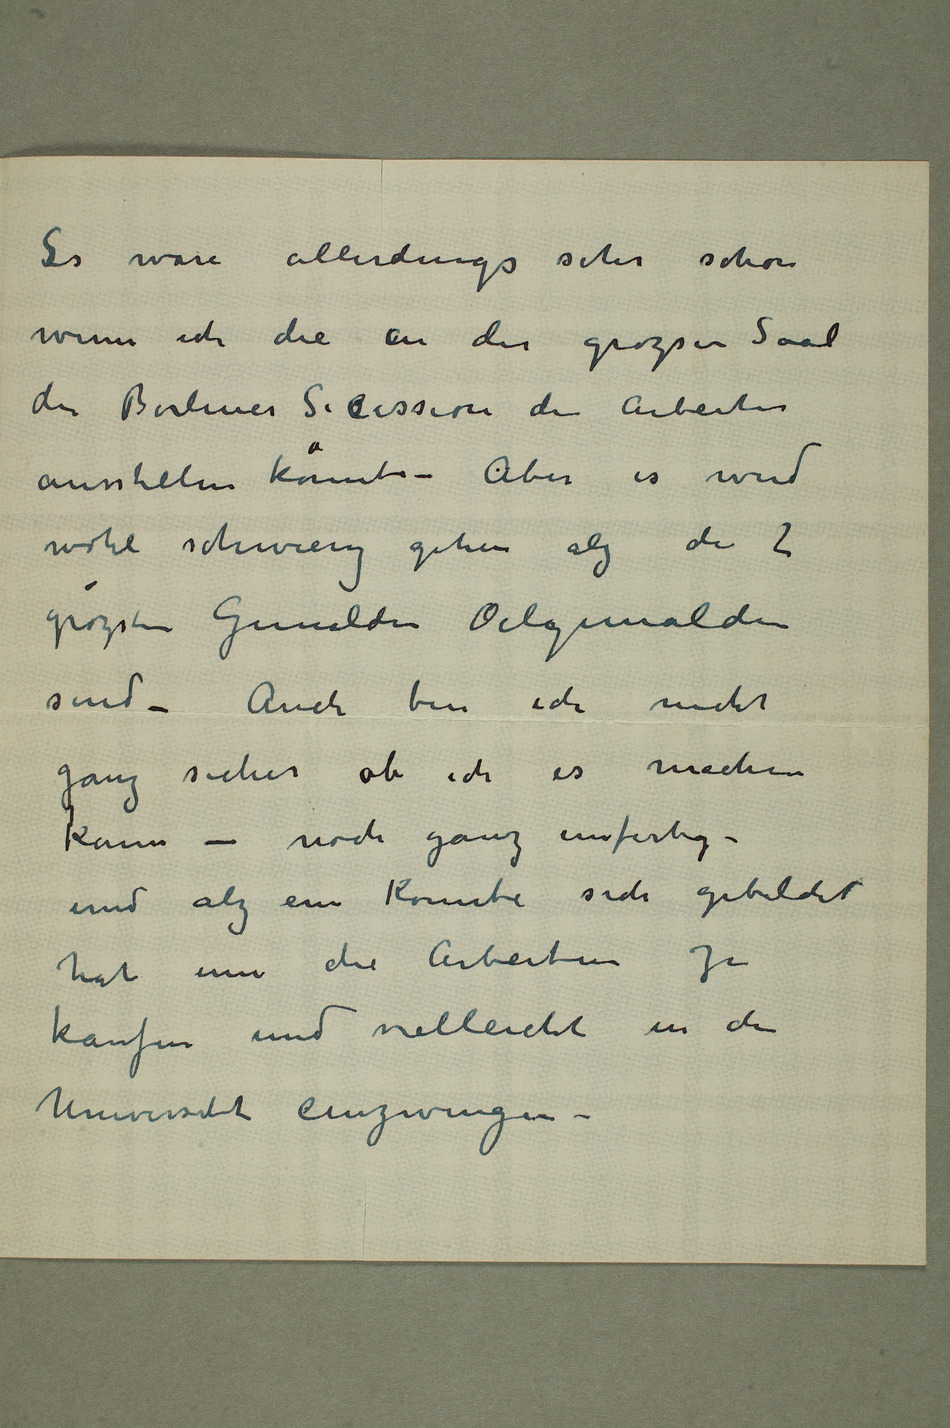 Es ware allerdings sehr schon
wenn ich die in der grozsen Saal
der Berliner Secession die Arbeiten
ausstellen könnte – Aber es wird
wohl schwierig gehen alz die 2
grózsten Gemalden Oelgemalden
sind – Auch bin ich nicht
ganz sicher ob ich es machen
kann – noch ganz unfertig –
und alz ein Komite sich gebildet
hat um die Arbeiten zu
kaufen und vielleicht in die
Universitet einzwingen –